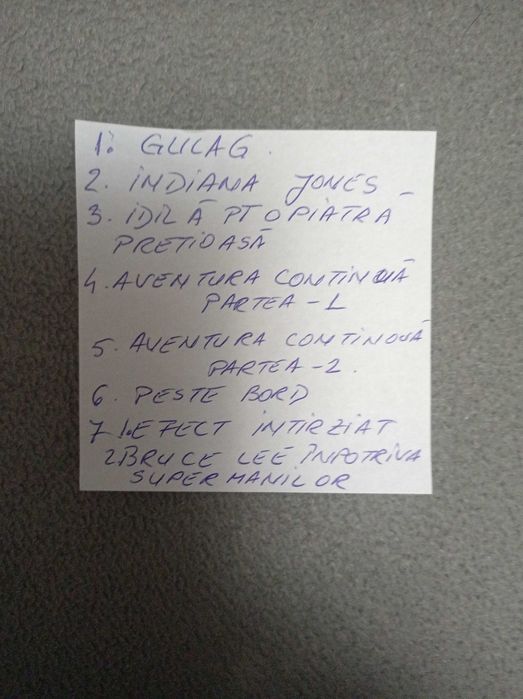 1. GULAG.
2. INDIANA JONES -
3. IDILĂ PT O PIATRĂ
PRETIOASĂ
4. AVENTURA CONTINUĂ
PARTEA - 1
5. AVENTURA CONTINOUĂ
PARTEA - 2.
6. PESTE BORD
7 1. EFECT INTIRZIAT
2 BRUCE LEE ÎNPOTRIVA
SUPERMANILOR